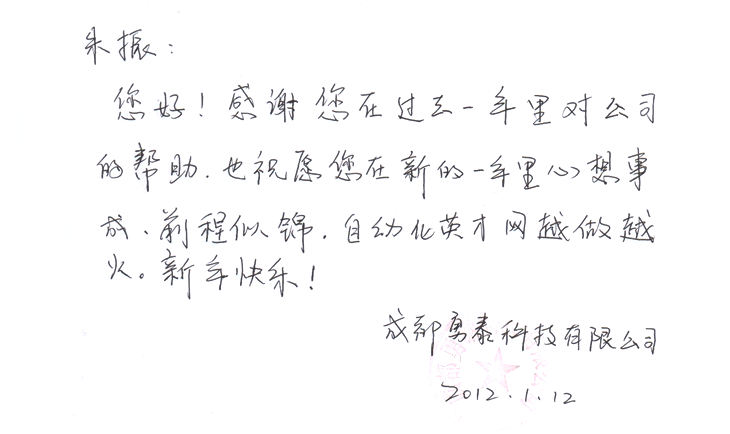 朱振：
您好！感谢您在过去一年里对公司
的帮助，也祝愿您在新的一年里心想事
成、前程似锦，自动化英才网越做越
火。新年快乐！
成都勇泰科技有限公司
2012.1.12